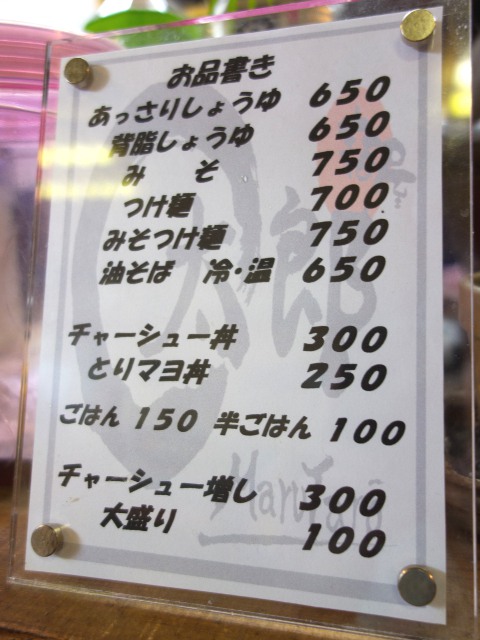 お品書き
あっさりしょうゆ 650
背脂しょうゆ 650
みそ 750
つけ麺 700
みそつけ麺 750
油そば 冷・温 650
チャーシュー丼 300
とりマヨ丼 250
ごはん 150 半ごはん 100
チャーシュー増し 300
大盛り 100
太郎